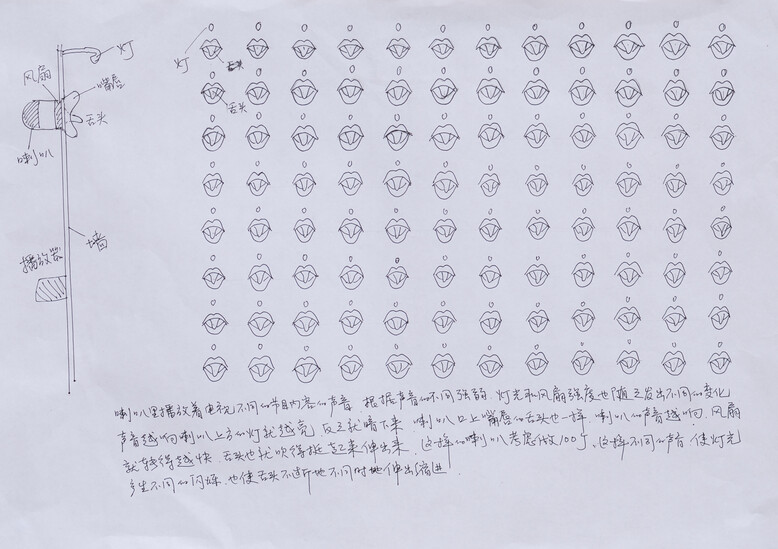 灯
风扇
嘴唇
舌头
喇叭
墙
播放器
灯
舌头
舌头
喇叭里播放着电视不同的节目内容的声音.根据声音的不同强弱.灯光和风扇强度也随之发出不同的变化
声音越响喇叭上方的灯就越亮 反之就暗下来 喇叭口上嘴唇的舌头也一样.喇叭的声音越响.风扇
就转得越快.舌头也就吹得挺起来伸出来.这样的喇叭考虑做100个.这样不同的声音 使灯光
产生不同的闪烁.也使舌头不断地不同时地伸出缩进.